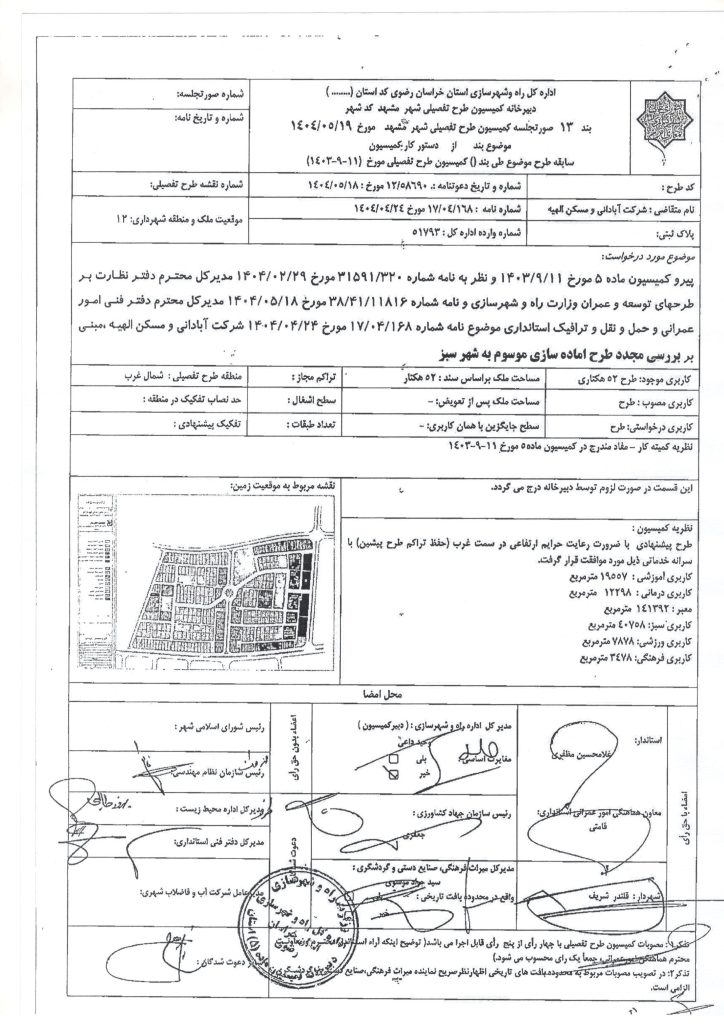 اداره کل راه وشهرسازی استان خراسان رضوی کد استان (........)
دبیرخانه کمیسیون طرح تفصیلی شهر مشهد کد شهر
بند ۱۳ صورتجلسه کمیسیون طرح تفصیلی شهر مشهد مورخ ۱۴۰۴/۰۵/۱۹
موضوع بند از دستور کار کمیسیون
سابقه طرح موضوع طی بند () کمیسیون طرح تفصیلی مورخ (۱۱-۹-۱۴۰۳)
شماره صورتجلسه:
شماره و تاریخ نامه:
کد طرح :
شماره و تاریخ دعوتنامه :. ۱۲/۵۸۶۹۰ مورخ : ۱۴۰۴/۰۵/۱۸
شماره نقشه طرح تفصیلی:
نام متقاضی : شرکت آبادانی و مسکن الهیه
شماره نامه : ۱۷/۰۴/۱۶۸ مورخ ۱۴۰۴/۰۴/۲۴
موقعیت ملک و منطقه شهرداری: ۱۲
پلاک ثبتی:
شماره وارده اداره کل : ۵۱۷۹۳
موضوع مورد درخواست:
پیرو کمیسیون ماده ۵ مورخ ۱۴۰۳/۹/۱۱ و نظر به نامه شماره ۳۱۵۹۱/۳۲۰ مورخ ۱۴۰۴/۰۲/۲۹ مدیرکل محترم دفتر نظارت بر
طرحهای توسعه و عمران وزارت راه و شهرسازی و نامه شماره ۳۸/۴۱/۱۱۸۱۶ مورخ ۱۴۰۴/۰۵/۱۸ مدیرکل محترم دفتر فنی امور
عمرانی و حمل و نقل و ترافیک استانداری موضوع نامه شماره ۱۷/۰۴/۱۶۸ مورخ ۱۴۰۴/۰۴/۲۴ شرکت آبادانی و مسکن الهیه ،مبنی
بر بررسی مجدد طرح اماده سازی موسوم به شهر سبز
کاربری موجود: طرح ۵۲ هکتاری
مساحت ملک براساس سند : ۵۲ هکتار
تراکم مجاز :
منطقه طرح تفصیلی : شمال غرب
کاربری مصوب : طرح
مساحت ملک پس از تعویض: -
سطح اشغال :
حد نصاب تفکیک در منطقه :
کاربری درخواستی: طرح
سطح جایگزین با همان کاربری: -
تعداد طبقات :
تفکیک پیشنهادی :
نظریه کمیته کار – مفاد مندرج در کمیسیون ماده۵ مورخ ۱۱-۹-۱۴۰۳
این قسمت در صورت لزوم توسط دبیرخانه درج می گردد.
نقشه مربوط به موقعیت زمین:
نظریه کمیسیون :
طرح پیشنهادی با ضرورت رعایت حرایم ارتفاعی در سمت غرب (حفظ تراکم طرح پیشین) با
سرانه خدماتی ذیل مورد موافقت قرار گرفت.
کاربری آموزشی : ۱۹۵۵۷ مترمربع
کاربری درمانی : ۱۲۲۹۸ مترمربع
معبر : ۱۴۱۳۹۲ مترمربع
کاربری سبز: ۴۰۷۵۸ مترمربع
کاربری ورزشی: ۷۸۷۸ مترمربع
کاربری فرهنگی: ۳۴۷۸ مترمربع
محل امضا
اعضاء با حق رأی
استاندار:
غلامحسین مظفری
مدیر کل اداره راه و شهرسازی : ( دبیرکمیسیون )
وحید داعی
مغایرت اساسی:
بلی
خیر
اعضاء بدون حق رأی
رئیس شورای اسلامی شهر :
رئیس سازمان نظام مهندسی:
معاون هماهنگی امور عمرانی استانداری:
قامتی
رئیس سازمان جهاد کشاورزی :
جعفری
مدیرکل اداره محیط زیست :
مدیرکل دفتر فنی استانداری:
شهردار : قلندر شریف
مدیرکل میراث فرهنگی، صنایع دستی و گردشگری :
سید جواد موسوی
واقع در محدوده بافت تاریخی :
دعوت شدگان
مدیرعامل شرکت آب و فاضلاب شهری:
دعوت شدگان :
تذکر۱: مصوبات کمیسیون طرح تفصیلی با چهار رأی از پنج رأی قابل اجرا می باشد( توضیح اینکه آراء استاندار محترم و معاونت
محترم هماهنگی امور عمرانی، جمعاً یک رای محسوب می شود.)
تذکر۲: در تصویب مصوبات مربوط به محدوده بافت های تاریخی اظهارنظر صریح نماینده میراث فرهنگی،صنایع دستی و گردشگری
الزامی است.